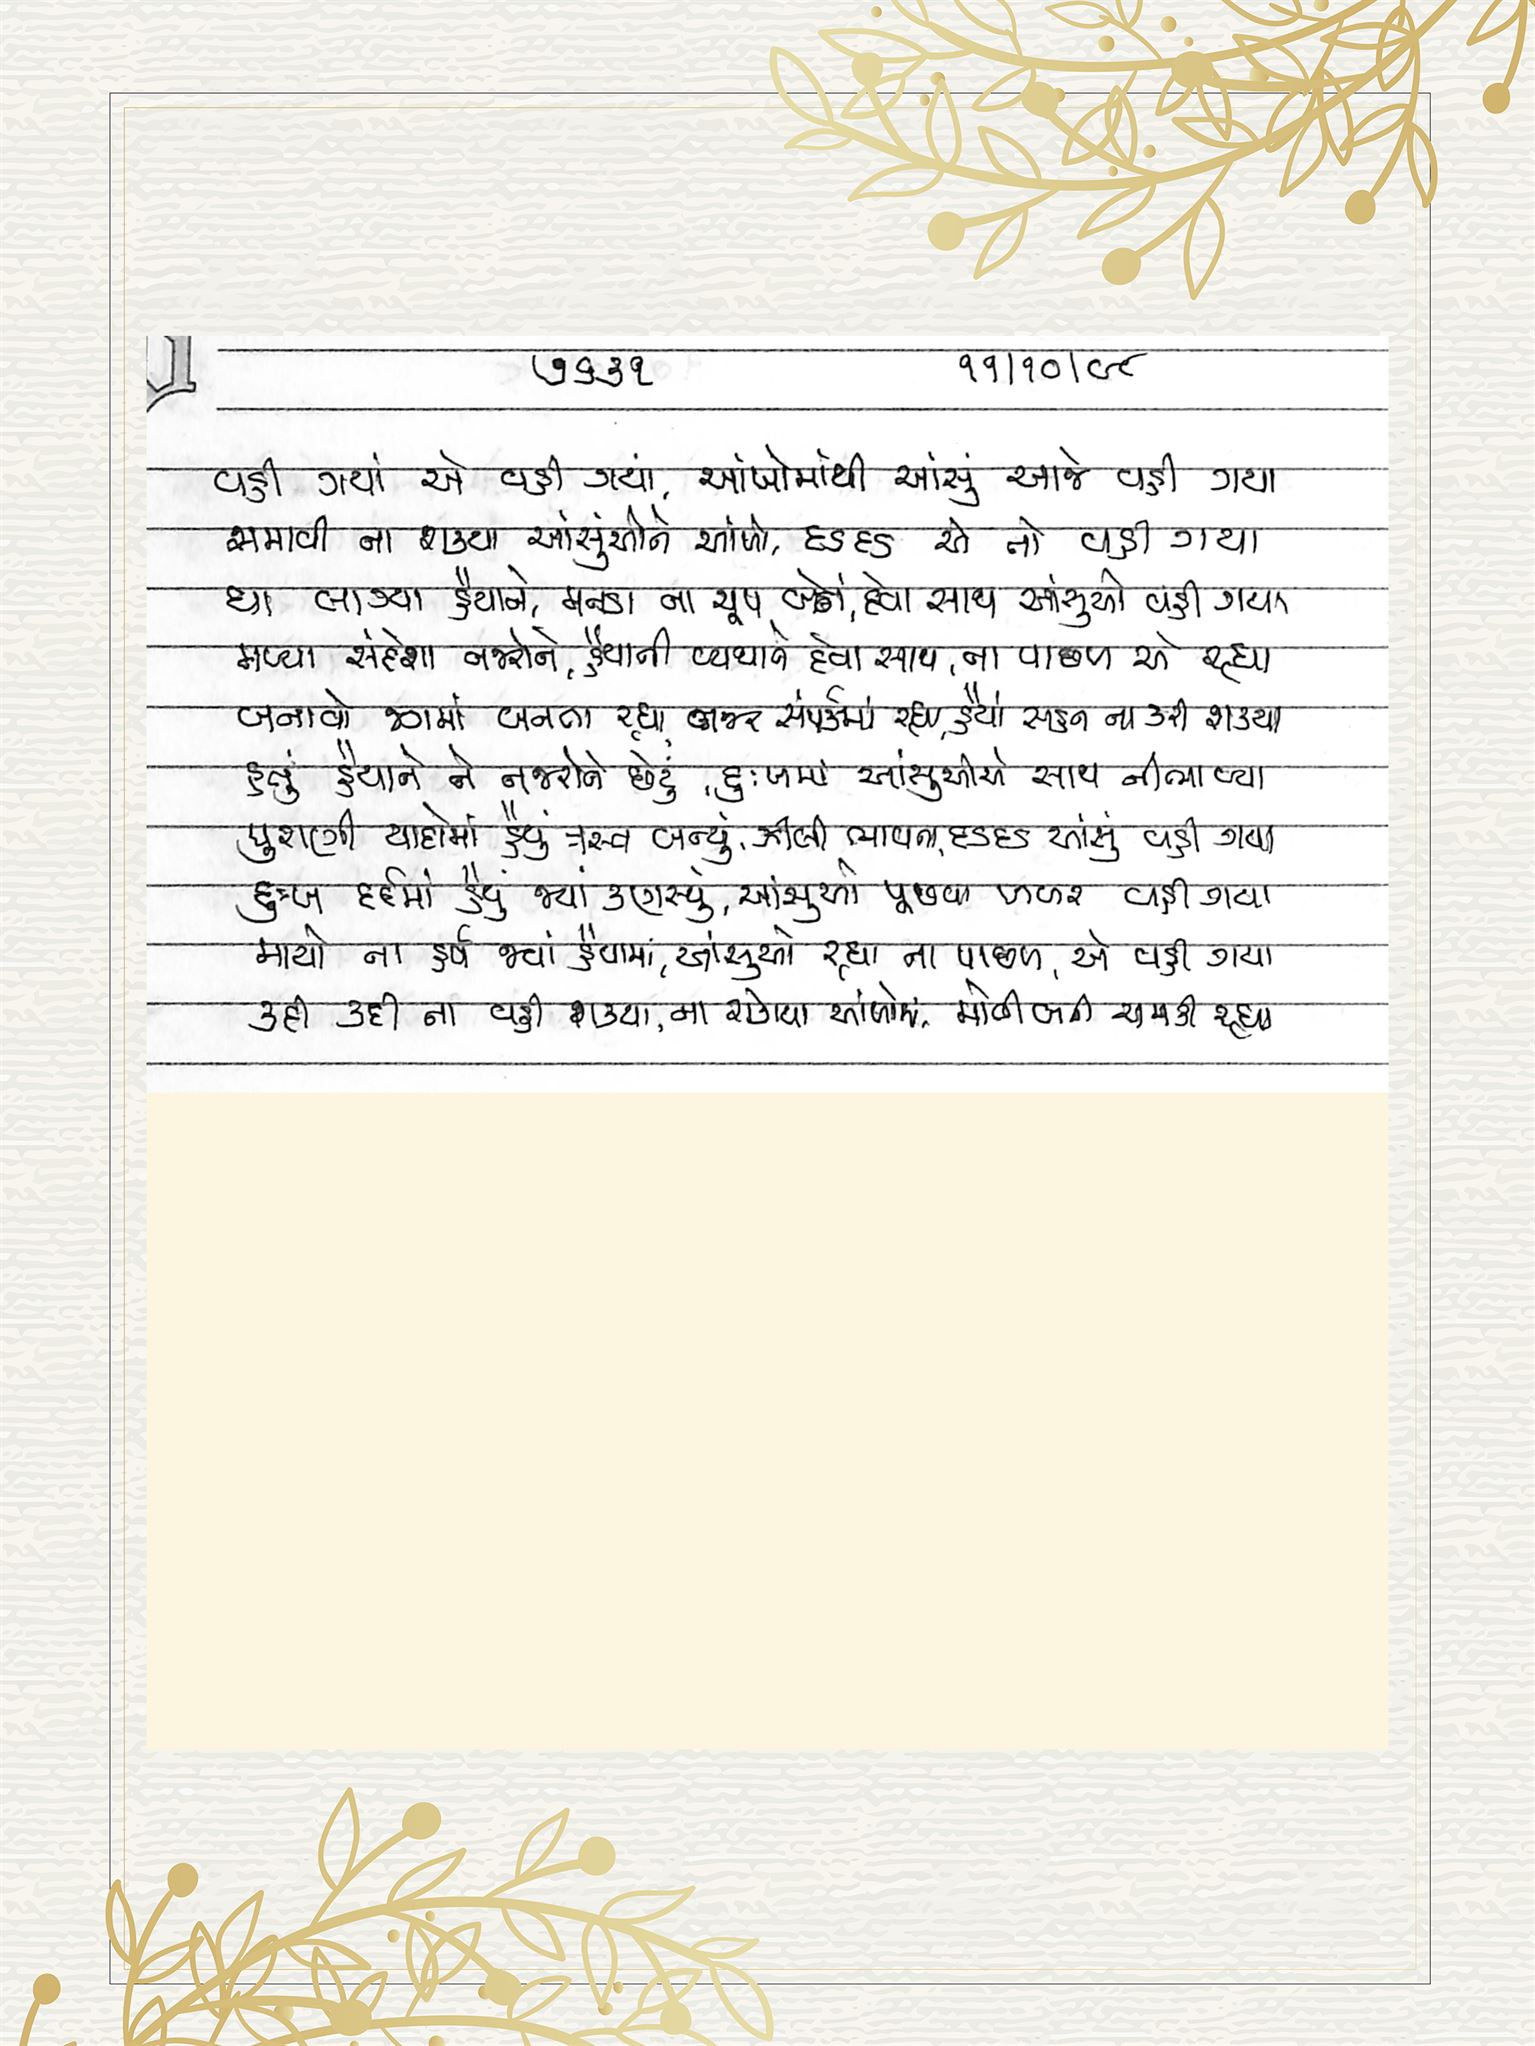 ૭૬૩૧ ૧૧/૧૦/૯૮
વહી ગયાં એ વહી ગયાં, આંખોમાંથી આંસું આજે વહી ગયા
સમાવી ના શક્યા આંસુંઓને આંખો, દડદડ એ તો વહી ગયા
ઘા લાગ્યા હૈયાને, મનડા ના ચૂપ બેઠાં, દેવા સાથ આંસુઓ વહી ગયા
મળ્યા સંદેશા નજરોને, હૈયાની વ્યથાને દેવા સાથ, ના પાછળ એ રહ્યા
બનાવો જગમાં બનતા રહ્યા, નજર સંપર્કમાં રહ્યા, હૈયાં સહન ના કરી શક્યા
હતું હૈયાને ને નજરોને છેટું, દુઃખમાં આંસુઓએ સાથ નીભાવ્યા
પુરાણી યાદોમાં હૈયું ત્રસ્ત બન્યું, ઝીલી ભાવના, દડદડ આંસું વહી ગયા
દુઃખ દર્દમાં હૈયું જ્યાં કણસ્યું, આંસુઓ પૂછવા ખબર વહી ગયા
માયો ના હર્ષ જ્યાં હૈયામાં, આંસુઓ રહ્યા ના પાછળ, એ વહી ગયા
કદી કદી ના વહી શક્યા, ના રોકાયા આંખોમાં, મોતી બની ચમકી રહ્યા